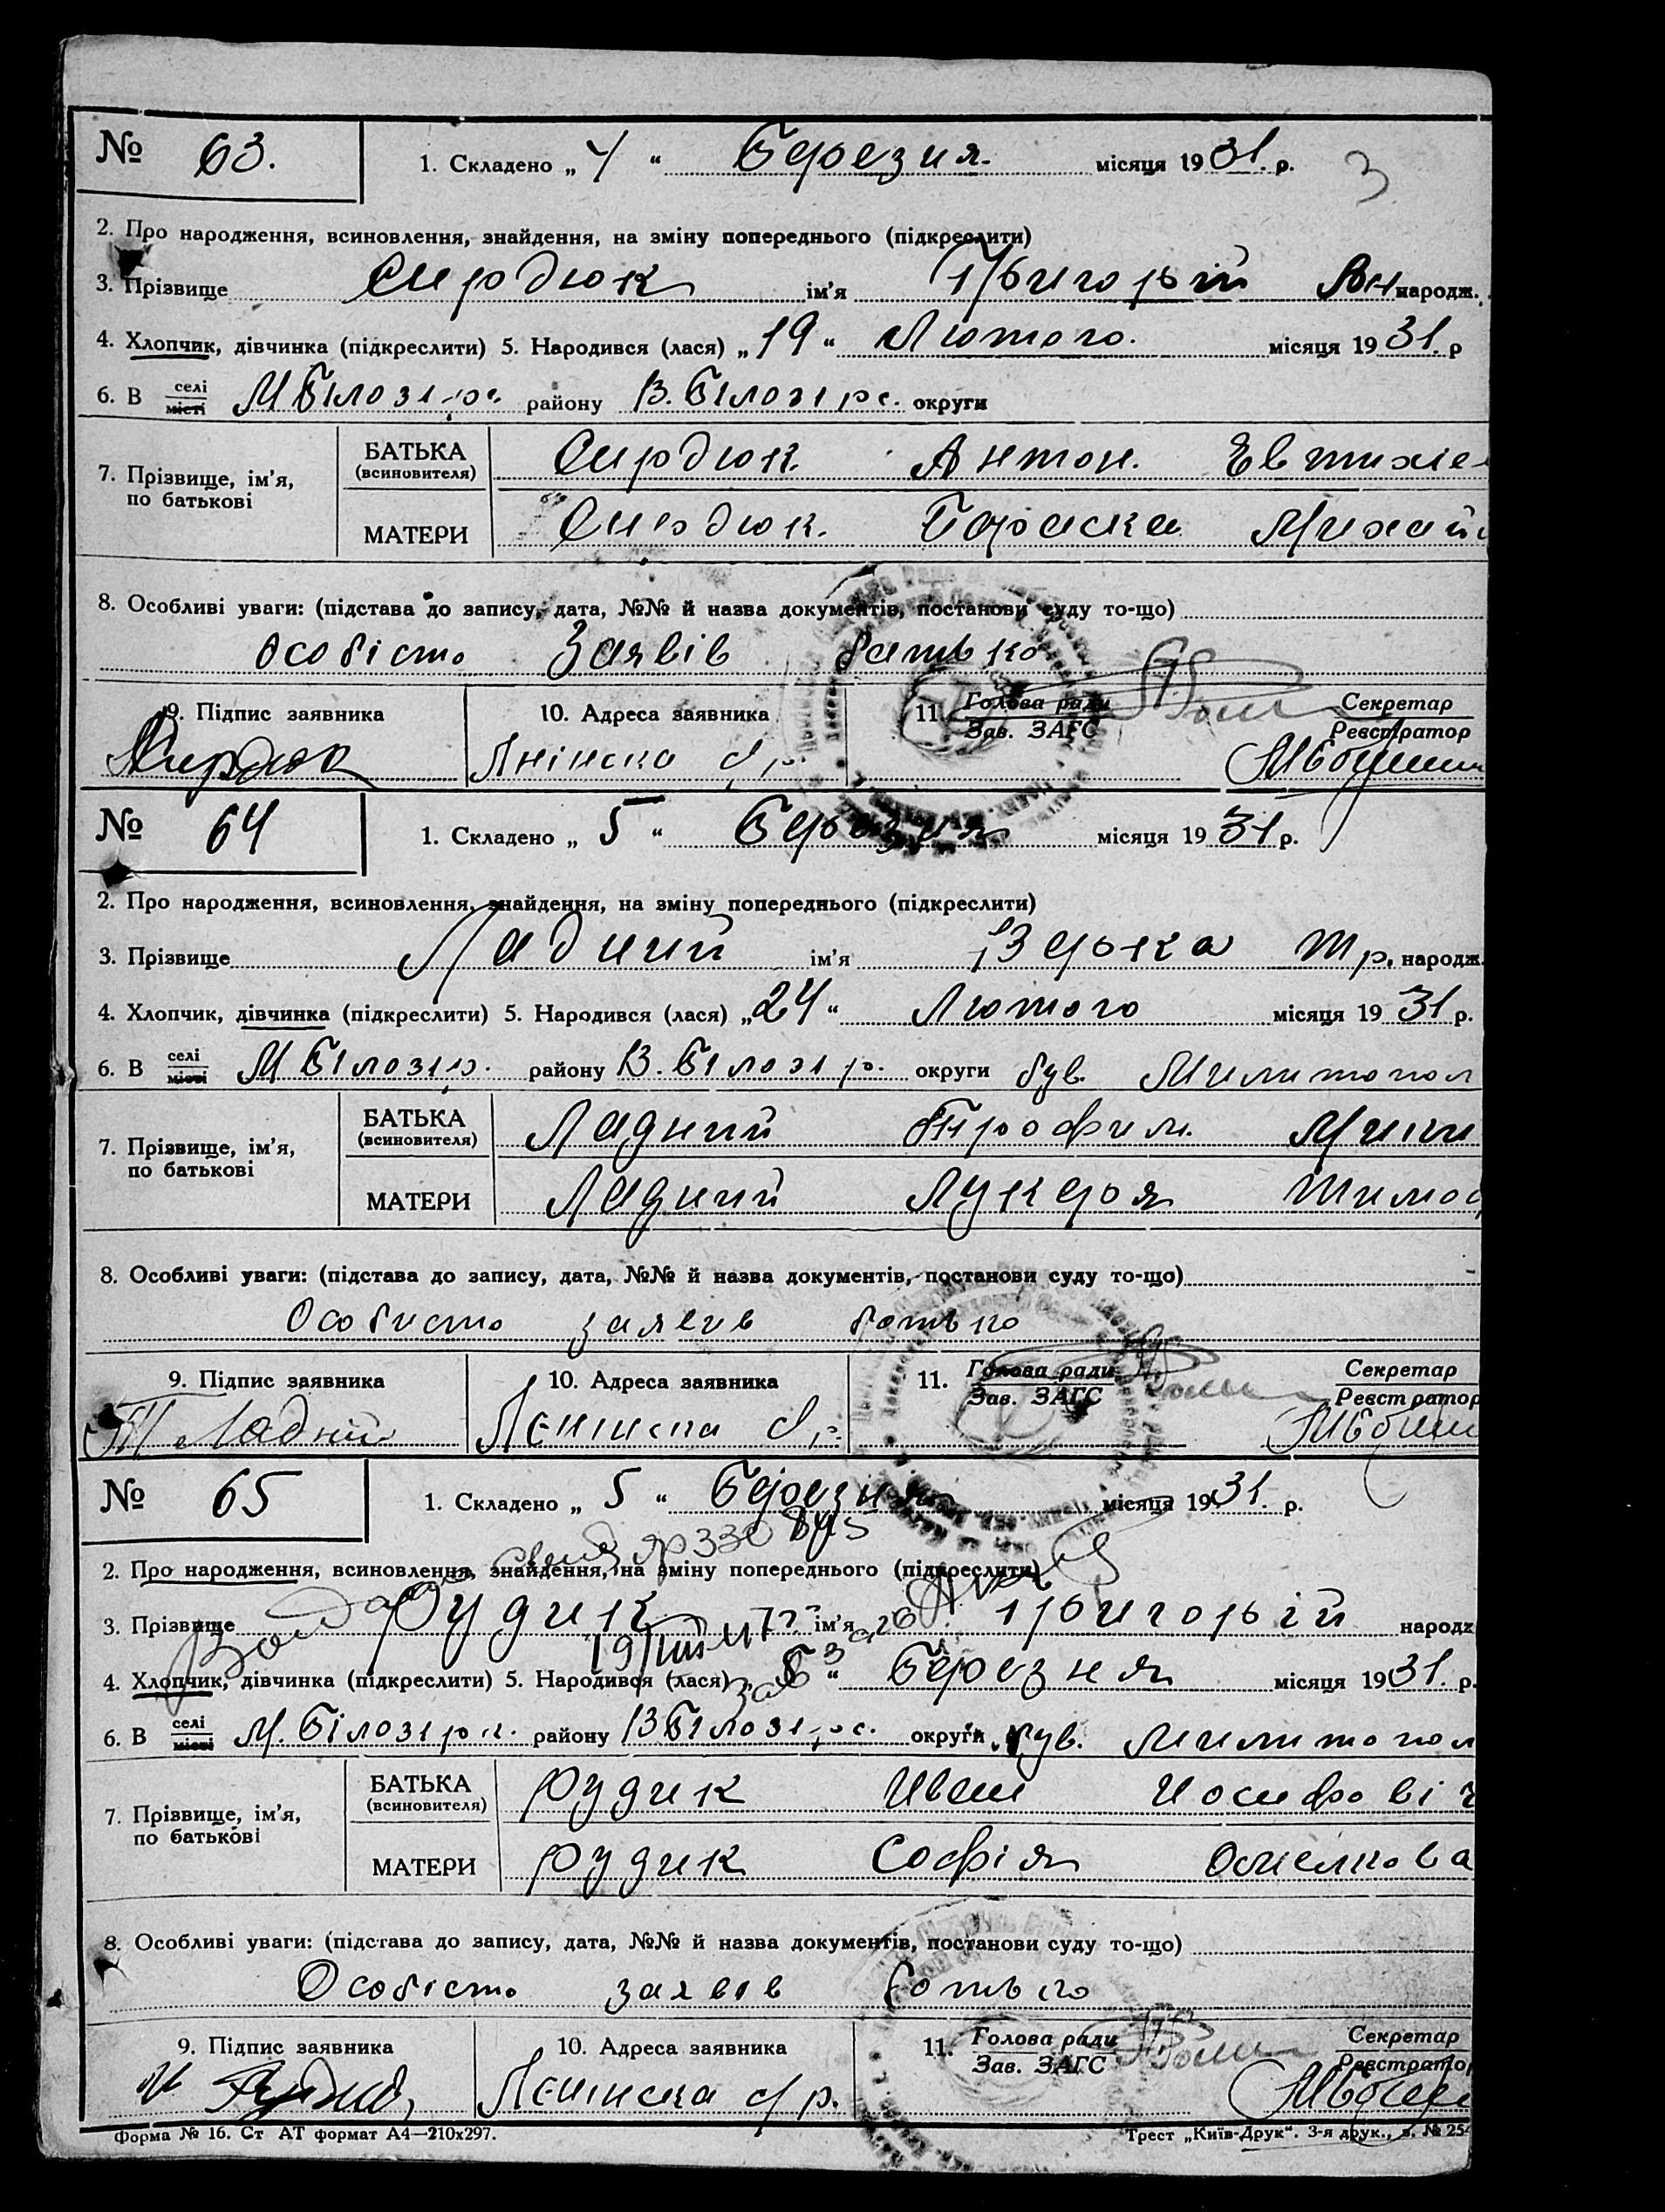 № 63. 1. Складено „ 4 “ Березня. місяця 1931. р. 3
2. Про народження, всиновлення, знайдення, на зміну попереднього (підкреслити)
3. Прізвище Сирдюк ім’я Григорій Ан народж.
4. Хлопчик, дівчинка (підкреслити) 5. Народився (лася) „19“ Лютого. місяця 1931. р
6. В селі місті М Білозірк. району В. Білозірс. округи
7. Прізвище, ім’я, по батькові
БАТЬКА (всиновителя) Сирдюк Антон. Евтихіе
МАТЕРИ Сирдюк. Параска Михай
8. Особливі уваги: (підстава до запису, дата, №№ й назва документів, постанови суду то-що)
Особісто Заявів батько
9. Підпис заявника 10. Адреса заявника 11. Голова ради Зав. ЗАГС Секретар Реєстратор
Сирдюк
№ 64 1. Складено „ 5 “ Березня місяця 1931 р.
2. Про народження, всиновлення, знайдення, на зміну попереднього (підкреслити)
3. Прізвище Ладний ім’я Тр. народж.
4. Хлопчик, дівчинка (підкреслити) 5. Народився (лася) „24“ Лютого місяця 1931 р.
6. В селі місті М Білозір. району В. Білозір. округи був. Милитопол
7. Прізвище, ім’я, по батькові
БАТЬКА (всиновителя) Ладний Трофим
МАТЕРИ Ладний Лукеря Тимоф
8. Особливі уваги: (підстава до запису, дата, №№ й назва документів, постанови суду то-що)
Особисто заявив батько
9. Підпис заявника 10. Адреса заявника 11. Голова ради Зав. ЗАГС Секретар Реєстратор
Т Ладний Ленінска
№ 65 1. Складено „ 5 “ Березня місяця 1931. р.
2. Про народження, всиновлення, знайдення, на зміну попереднього (підкреслити)
3. Прізвище Рудик ім’я Григорій народж
4. Хлопчик, дівчинка (підкреслити) 5. Народився (лася) „ “ Березня місяця 1931. р.
6. В селі місті М. Білозірк. району В Білозірс. округи був. Милитопол
7. Прізвище, ім’я, по батькові
БАТЬКА (всиновителя) Рудик Иван Иосифовіч
МАТЕРИ Рудик Софія
8. Особливі уваги: (підстава до запису, дата, №№ й назва документів, постанови суду то-що)
Особісто заявів батько
9. Підпис заявника 10. Адреса заявника 11. Голова ради Зав. ЗАГС Секретар Реєстратор
И Рудик Ленінска с/р.
Форма № 16. Ст АТ формат А4—210х297. Трест „Київ-Друк“. 3-я друк., з. № 254